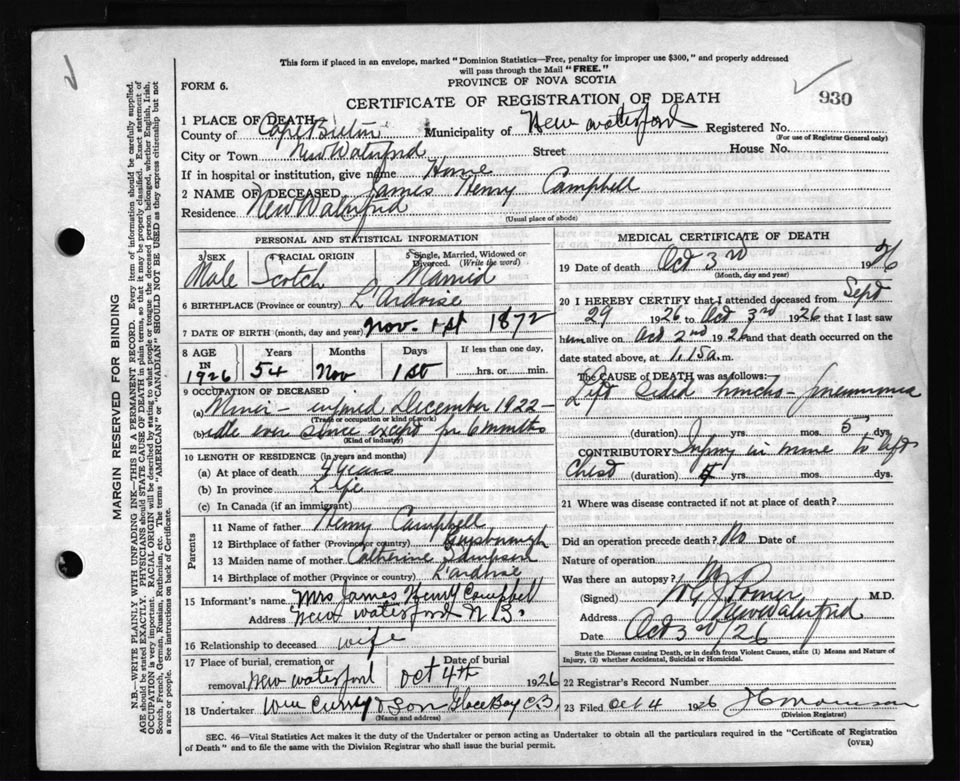 This form if placed in an envelope, marked "Dominion Statistics—Free, penalty for improper use $300," and properly addressed
will pass through the Mail "FREE."
PROVINCE OF NOVA SCOTIA
FORM 6.
CERTIFICATE OF REGISTRATION OF DEATH
930
1 PLACE OF DEATH
County of Cape Breton Municipality of New Waterford Registered No.
(For use of Registrar General only)
City or Town New Waterford Street House No.
If in hospital or institution, give name Home
2 NAME OF DECEASED James Henry Campbell
Residence New Waterford
(Usual place of abode)
PERSONAL AND STATISTICAL INFORMATION
3 SEX
Male
4 RACIAL ORIGIN
Scotch
5 Single, Married, Widowed or
Divorced. (Write the word)
Married
6 BIRTHPLACE (Province or country) L'Ardoise
7 DATE OF BIRTH (month, day and year) Nov. 1st 1872
8 AGE
IN
1926
Years
54
Months
Nov
Days
1st
If less than one day,
hrs. or min.
9 OCCUPATION OF DECEASED
(a) Miner – injured December 1922 –
(Trade or occupation or kind of work)
(b) idle ever since except for 6 months
(Kind of industry)
10 LENGTH OF RESIDENCE (in years and months)
(a) At place of death 4 years
(b) In province Life
(c) In Canada (if an immigrant)
Parents
11 Name of father Henry Campbell
12 Birthplace of father (Province or country) Guysborough
13 Maiden name of mother Catherine Sampson
14 Birthplace of mother (Province or country) L'ardoise
15 Informant's name Mrs James Henry Campbell
Address New Waterford N B.
16 Relationship to deceased wife
17 Place of burial, cremation or
removal New Waterford
Date of burial
Oct 4th 1926
18 Undertaker Wm Curry & Son Glace Bay C.B.
(Name and address)
MEDICAL CERTIFICATE OF DEATH
19 Date of death Oct 3rd 1926
(Month, day and year)
20 I HEREBY CERTIFY that I attended deceased from Sept
29 1926 to Oct 3rd 1926 that I last saw
him alive on Oct 2nd 1926 and that death occurred on the
date stated above, at 1.15 a.m.
The CAUSE OF DEATH was as follows:
Left Sided broncho-pneumonia
(duration) yrs. mos. 5 dys.
CONTRIBUTORY Injury in mine to left
chest (duration) 4 yrs. mos. dys.
21 Where was disease contracted if not at place of death?
Did an operation precede death? No Date of
Nature of operation
Was there an autopsy? No
(Signed) M.D.
Address New Waterford
Date Oct 3rd/26
State the Disease causing Death, or in death from Violent Causes, state (1) Means and Nature of
Injury, (2) whether Accidental, Suicidal or Homicidal.
22 Registrar's Record Number
23 Filed Oct 4 1926
(Division Registrar)
SEC. 46—Vital Statistics Act makes it the duty of the Undertaker or person acting as Undertaker to obtain all the particulars required in the "Certificate of Registration
of Death" and to file the same with the Division Registrar who shall issue the burial permit.
(OVER)
MARGIN RESERVED FOR BINDING
N.B.—WRITE PLAINLY WITH UNFADING INK—THIS IS A PERMANENT RECORD. Every item of information should be carefully supplied.
AGE should be stated EXACTLY. PHYSICIANS should STATE CAUSE OF DEATH in plain terms, so that it may be properly classified. Exact statement of
OCCUPATION is very important. RACIAL ORIGIN will be described by stating to what people or tongue the deceased person belonged, whether English, Irish,
Scotch, French, German, Russian, Ruthenian, etc. The terms "AMERICAN" or "CANADIAN" SHOULD NOT BE USED as they express citizenship but not
a race or people. See instructions on back of Certificate.